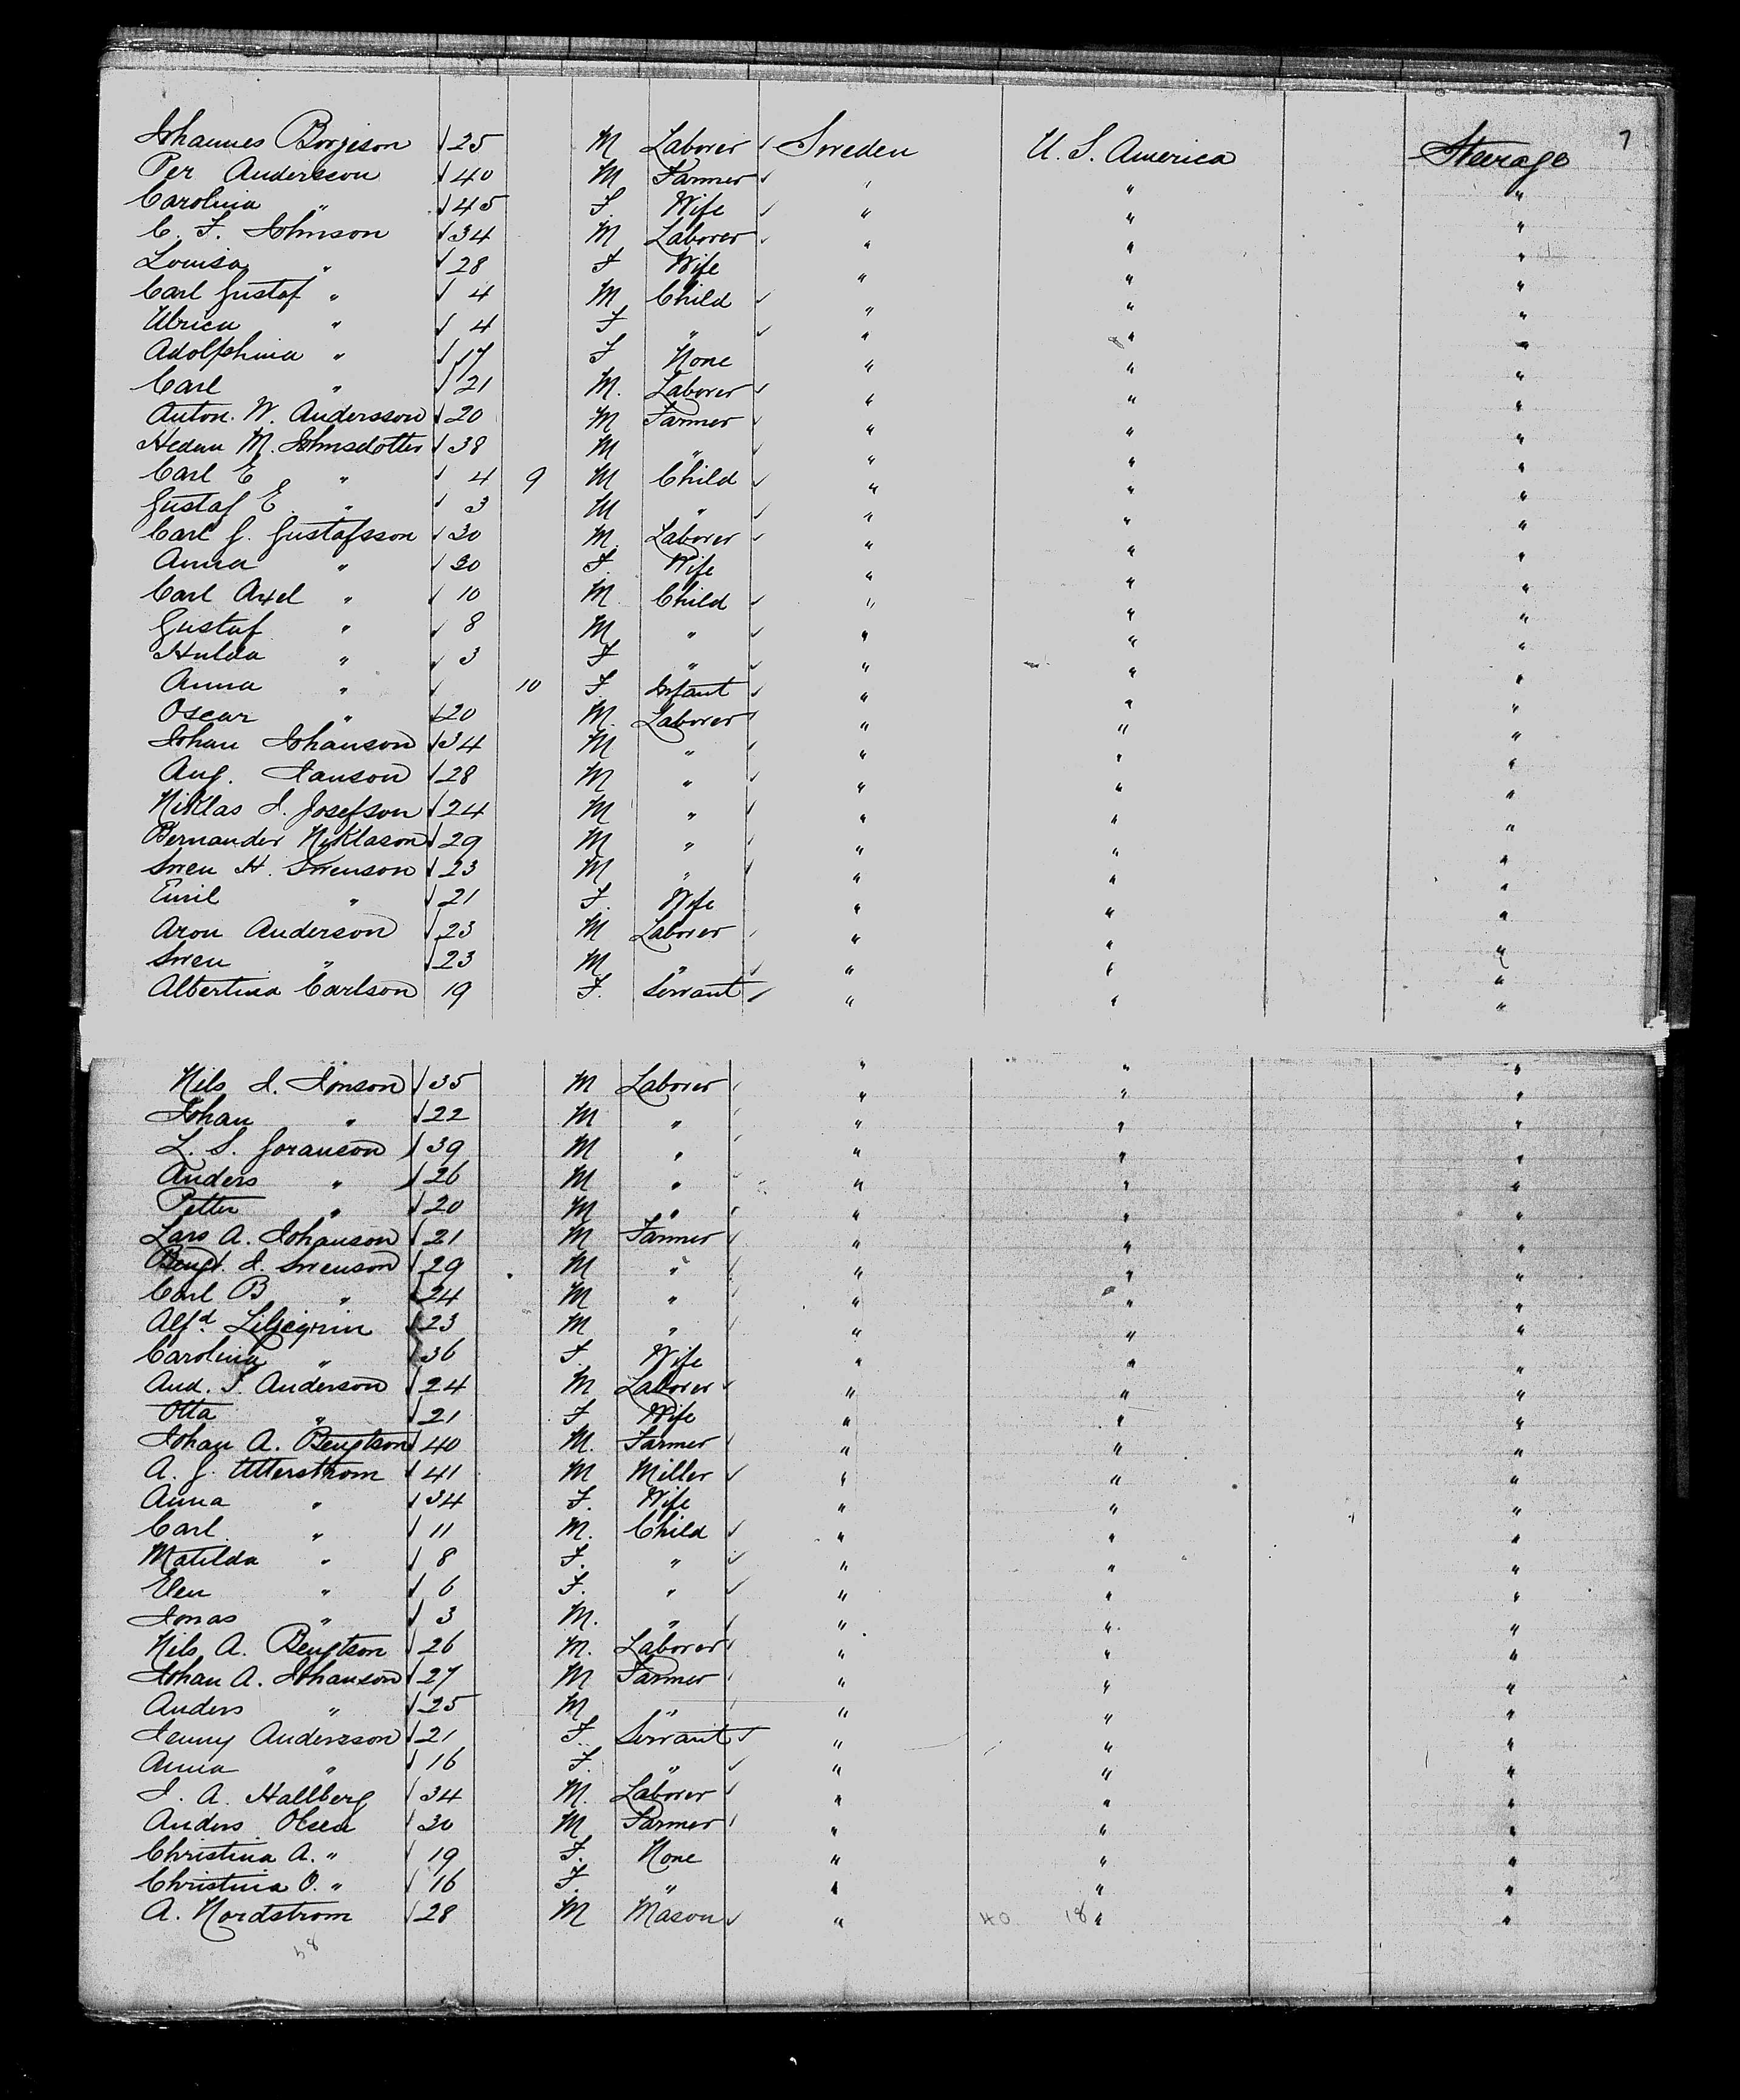 7
Johannes Borgeson √ 25 M Laborer √ Sweden U. S. America Steerage
Per Andersson √ 40 M Farmer √ " " "
Carolina " √ 45 F Wife √ " " "
C. F. Johnson √ 34 M Laborer √ " " "
Louisa " √ 28 F Wife " " "
Carl Gustaf " √ 4 M Child √ " " "
Ulrica " √ 4 F " √ " " "
Adolphina " √ 17 F None " " "
Carl " √ 21 M. Laborer √ " " "
Anton. W. Andersson √ 20 M Farmer √ " " "
M. Johnsdotter √ 38 M " √ " " "
Carl E " √ 4 9 M Child √ " " "
Gustaf E. " √ 3 M " √ " " "
Carl G. Gustafsson √ 30 M. Laborer √ " " "
Anna " √ 30 F. Wife " " "
Carl Axel " √ 10 M. Child √ " " "
Gustaf " √ 8 M " √ " " "
Hulda " √ 3 F " √ " " "
Anna " √ 10 F. Infant √ " " "
Oscar " √ 20 M. Laborer √ " " "
Johan Johanson √ 34 M " √ " " "
Aug. Janson √ 28 M " √ " " "
Niklas J. Josefson √ 24 M " √ " " "
Bernander Niklason √ 29 M " √ " " "
Swen H. Swenson √ 23 M " √ " " "
Emil " √ 21 F. Wife " " "
Aron Anderson √ 23 M Laborer √ " " "
Swen " √ 23 M " √ " " "
Albertina Carlson 19 F. Servant √ " " "
" " "
Nils J. Jonson √ 35 M Laborer √ " " "
Johan " √ 22 M " √ " " "
L. S. Goranson √ 39 M " √ " " "
Anders " √ 26 M " √ " " "
Petter " √ 20 M " √ " " "
Lars A. Johanson √ 21 M Farmer √ " " "
Bengt. J. Swenson √ 29 M " √ " " "
Carl B " √ 24 M " √ " " "
Alfd. Liljegrin √ 23 M " √ " " "
Carolina " √ 36 F. Wife " " "
And. S. Anderson √ 24 M Laborer √ " " "
Otta " √ 21 F Wife " " "
Johan A. Bengtson √ 40 M. Farmer √ " " "
A. G. Utterstrom √ 41 M Miller √ " " "
Anna " √ 34 F. Wife " " "
Carl " √ 11 M. Child √ " " "
Matilda " √ 8 F. " √ " " "
Elen " √ 6 F. " √ " " "
Jonas " √ 3 M. " √ " " "
Nils A. Bengtson √ 26 M. Laborer √ " " "
Johan A. Johanson √ 27 M Farmer √ " " "
Anders " √ 25 M " √ " " "
Jenny Andersson √ 21 F. Servant √ " " "
Anna " √ 16 F. " √ " " "
J. A. Hallberg √ 34 M. Laborer √ " " "
Anders Olsen √ 30 M Farmer √ " " "
Christina A. " √ 19 F. None " " "
Christina O. " √ 16 F. " " " "
A. Nordstrom √ 28 M Mason √ " 40. 18 " "
58